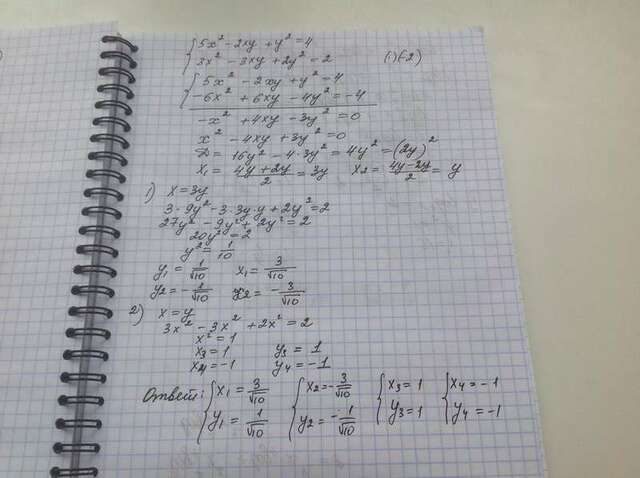 {5x² - 2xy + y² = 4
{3x² - 3xy + 2y² = 2 | (-2)
{5x² - 2xy + y² = 4
{-6x² + 6xy - 4y² = -4
-x² + 4xy - 3y² = 0
x² - 4xy + 3y² = 0
D = 16y² - 4·3y² = 4y² = (2y)²
x₁ = (4y + 2y)/2 = 3y x₂ = (4y - 2y)/2 = y
1) x = 3y
3·9y² - 3·3y·y + 2y² = 2
27y² - 9y² + 2y² = 2
20y² = 2
y² = 1/10
y₁ = 1/√10 x₁ = 3/√10
y₂ = -1/√10 x₂ = -3/√10
2) x = y
3x² - 3x² + 2x² = 2
x² = 1
x₃ = 1 y₃ = 1
x₄ = -1 y₄ = -1
Ответ: {x₁ = 3/√10 {x₂ = -3/√10 {x₃ = 1 {x₄ = -1
{y₁ = 1/√10 {y₂ = -1/√10 {y₃ = 1 {y₄ = -1